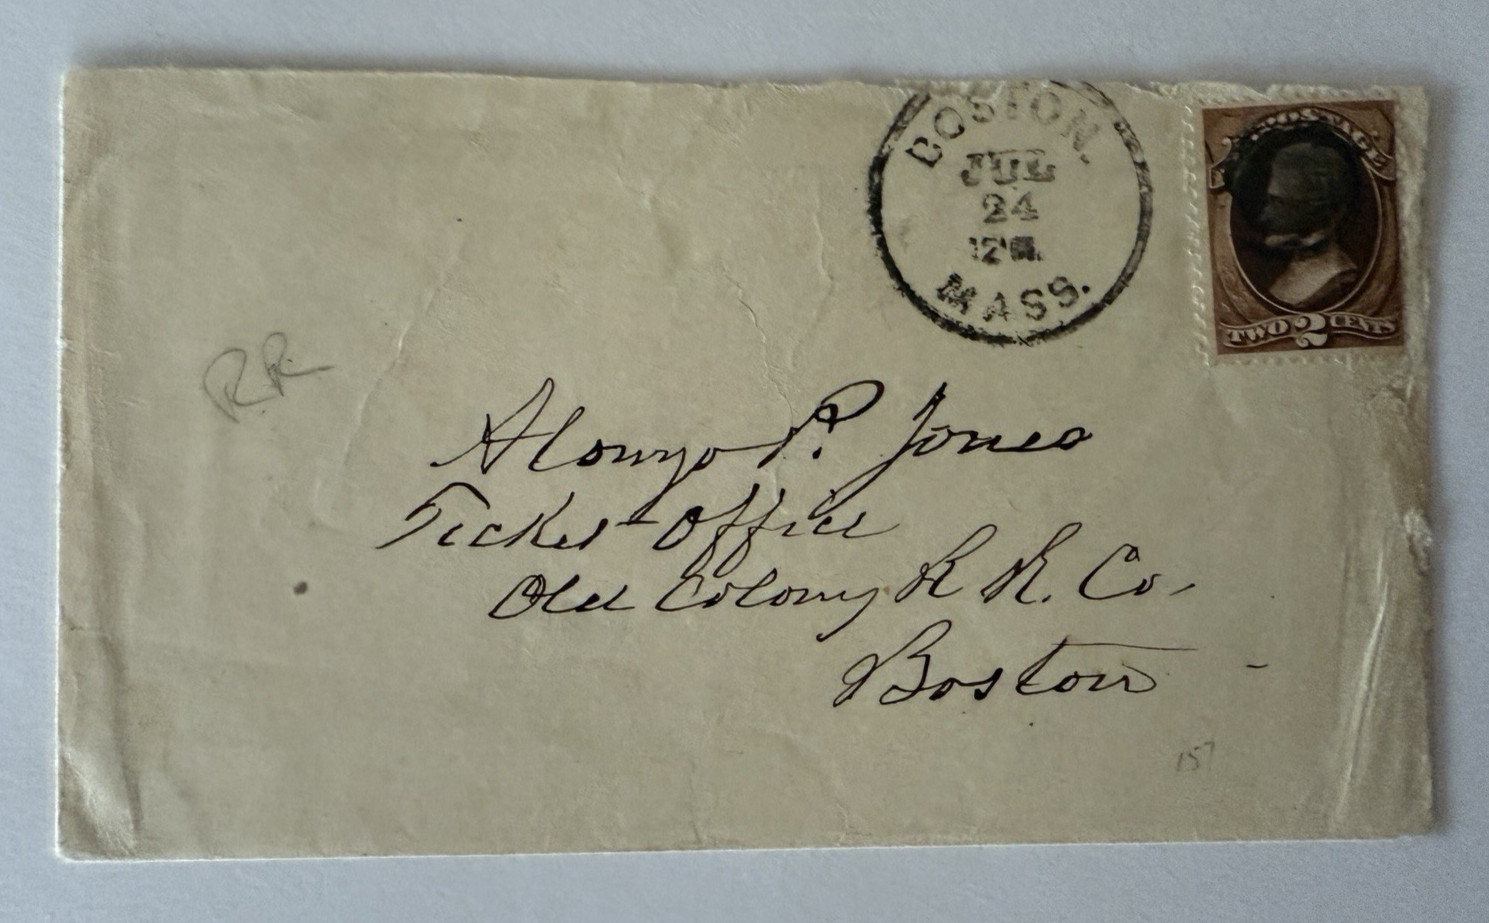 BOSTON.
JUL
24
MASS.
POSTAGE
TWO 2 CENTS
RR
Alonzo P. Jones
Ticket Office
Old Colony R R. Co.
Boston
157